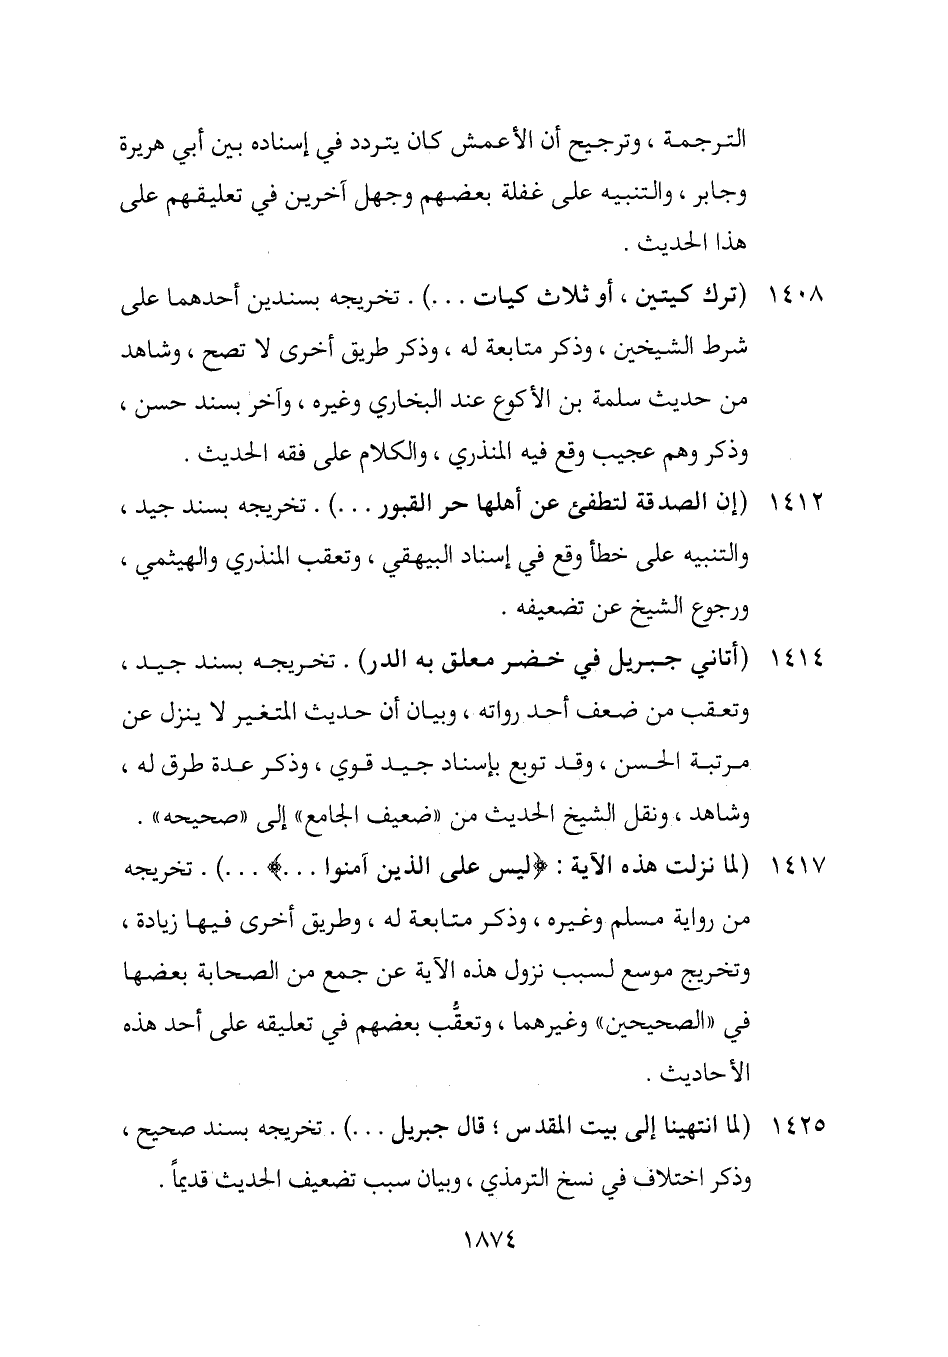 الترجمة ، وترجيح أن الأعمش كان يتردد في إسناده بين أبي هريرة
وجابر ، والتنبيه على غفلة بعضهم وجهل آخرين في تعليقهم على
هذا الحديث .
١٤٠٨ (ترك كيتين ، أو ثلاث كيات ...) . تخريجه بسندين أحدهما على
شرط الشيخين ، وذكر متابعة له ، وذكر طريق أخرى لا تصح ، وشاهد
من حديث سلمة بن الأكوع عند البخاري وغيره ، وآخر بسند حسن ،
وذكر وهم عجيب وقع فيه المنذري ، والكلام على فقه الحديث .
١٤١٢ (إن الصدقة لتطفئ عن أهلها حر القبور ...) . تخريجه بسند جيد ،
والتنبيه على خطأ وقع في إسناد البيهقي ، وتعقب المنذري والهيثمي ،
ورجوع الشيخ عن تضعيفه .
١٤١٤ (أتاني جبريل في خضر معلق به الدر) . تخريجه بسند جيد ،
وتعقب من ضعف أحد رواته ، وبيان أن حديث المتغير لا ينزل عن
مرتبة الحسن ، وقد توبع بإسناد جيد قوي ، وذكر عدة طرق له ،
وشاهد ، ونقل الشيخ الحديث من «ضعيف الجامع» إلى «صحيحه» .
١٤١٧ (لما نزلت هذه الآية : ﴿ليس على الذين آمنوا ...﴾ ...) . تخريجه
من رواية مسلم وغيره ، وذكر متابعة له ، وطريق أخرى فيها زيادة ،
وتخريج موسع لسبب نزول هذه الآية عن جمع من الصحابة بعضها
في «الصحيحين» وغيرهما ، وتعقُّب بعضهم في تعليقه على أحد هذه
الأحاديث .
١٤٢٥ (لما انتهينا إلى بيت المقدس ؛ قال جبريل ...) . تخريجه بسند صحيح ،
وذكر اختلاف في نسخ الترمذي ، وبيان سبب تضعيف الحديث قديماً .
١٨٧٤